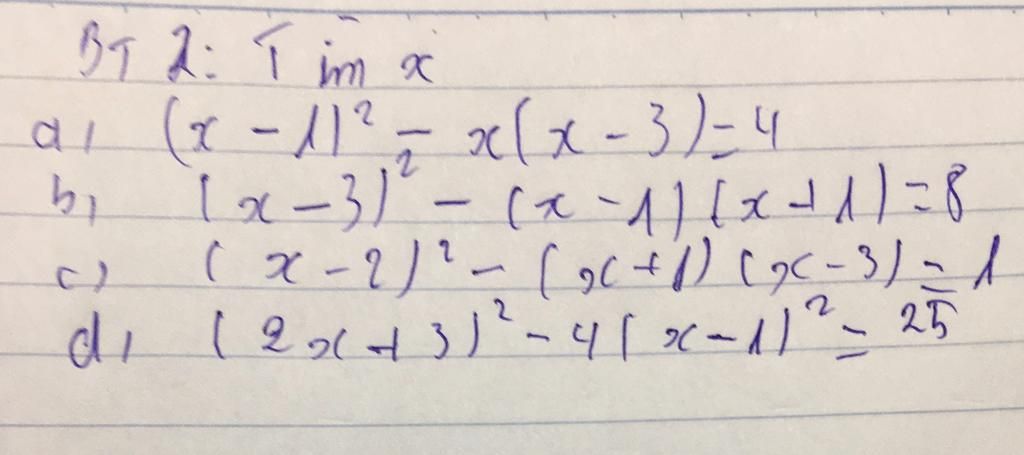 BT 2: Tìm x
a, (x - 1)² - x(x - 3) = 4
b, (x - 3)² - (x - 1)(x + 1) = 8
c) (x - 2)² - (x + 1)(x - 3) = 1
d, (2x + 3)² - 4(x - 1)² = 25